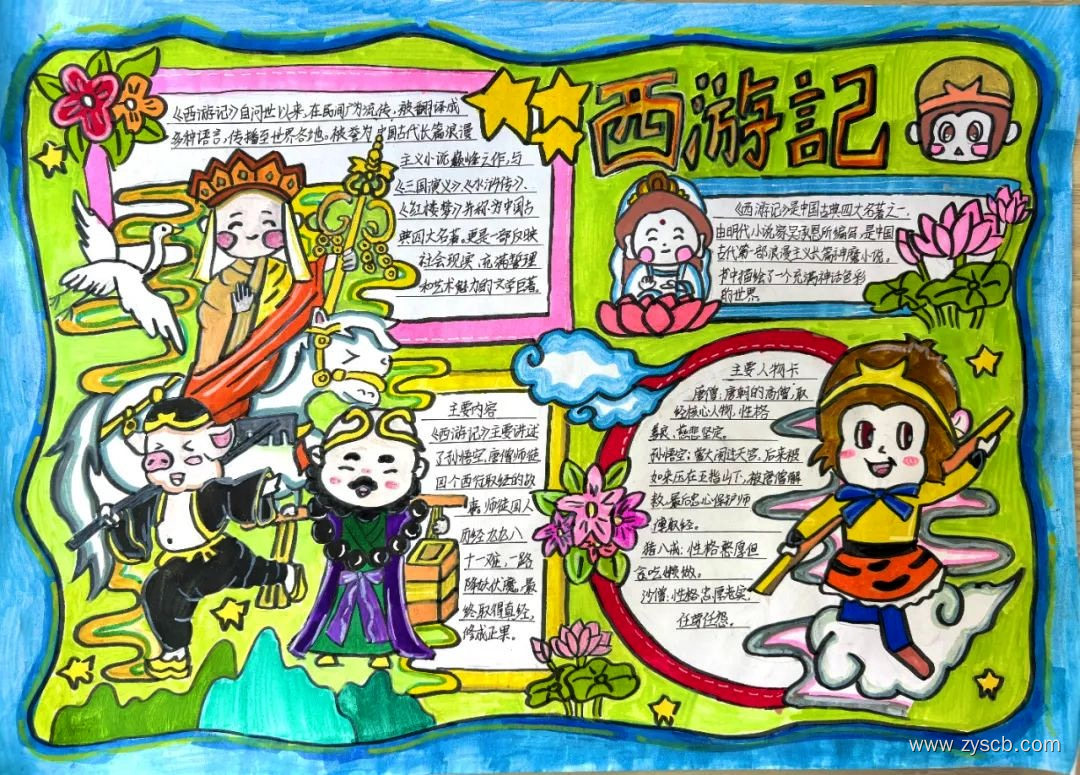 西游記
《西游记》自问世以来,在民间广为流传,被翻译成
多种语言,传播至世界各地。被誉为中国古代长篇浪漫
主义小说巅峰之作,与
《三国演义》、《水浒传》、
《红楼梦》并称为中国古
典四大名著。更是一部反映
社会现实、充满哲理
和艺术魅力的文学巨著。
《西游记》是中国古典四大名著之一,
由明代小说家吴承恩所编写,是中国
古代第一部浪漫主义长篇神魔小说。
书中描绘了一个充满神话色彩
的世界。
主要内容
《西游记》主要讲述
了孙悟空、唐僧师徒
四个西行取经的故
事,师徒四人
历经九九八
十一难,一路
降妖伏魔,最
终取得真经,
修成正果。
主要人物卡
唐僧:唐朝的高僧,取
经核心人物,性格
善良、慈悲坚定。
孙悟空:曾大闹过天宫。后来被
如来压在五指山下,被唐僧解
救,最后忠心保护师
傅取经。
猪八戒:性格憨厚但
贪吃懒做。
沙僧:性格忠厚老实,
任劳任怨。
www.zyscb.com